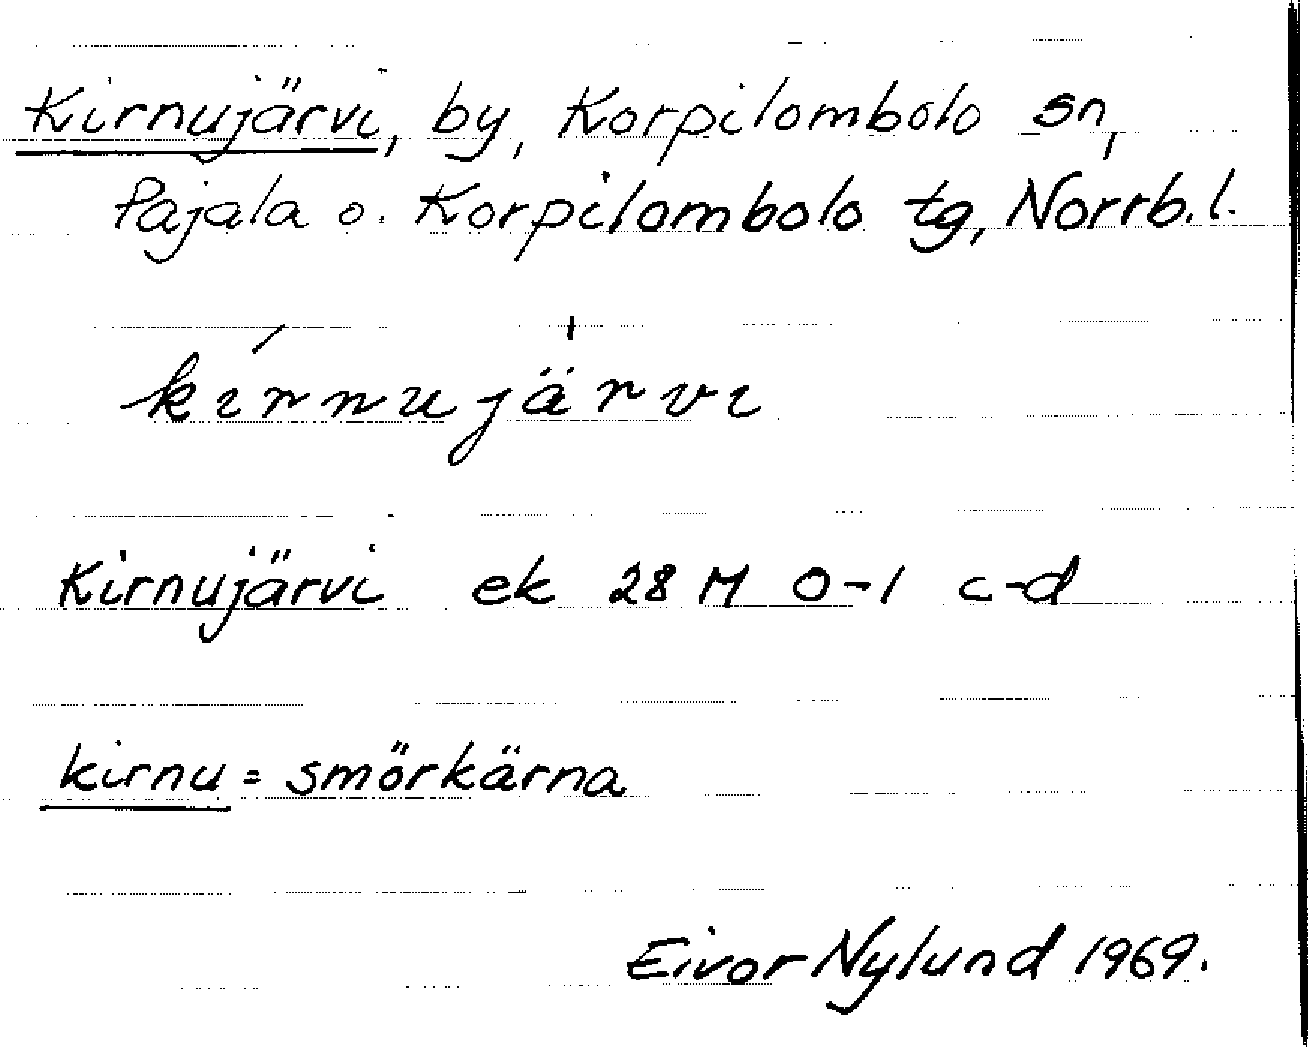 Kirnujärvi, by, Korpilombolo sn,
Pajala o. Korpilombolo tg, Norrb.l.
kírnujärvi
Kirnujärvi ek 28 M 0-1 c-d
kirnu = smörkärna
Eivor Nylund 1969.